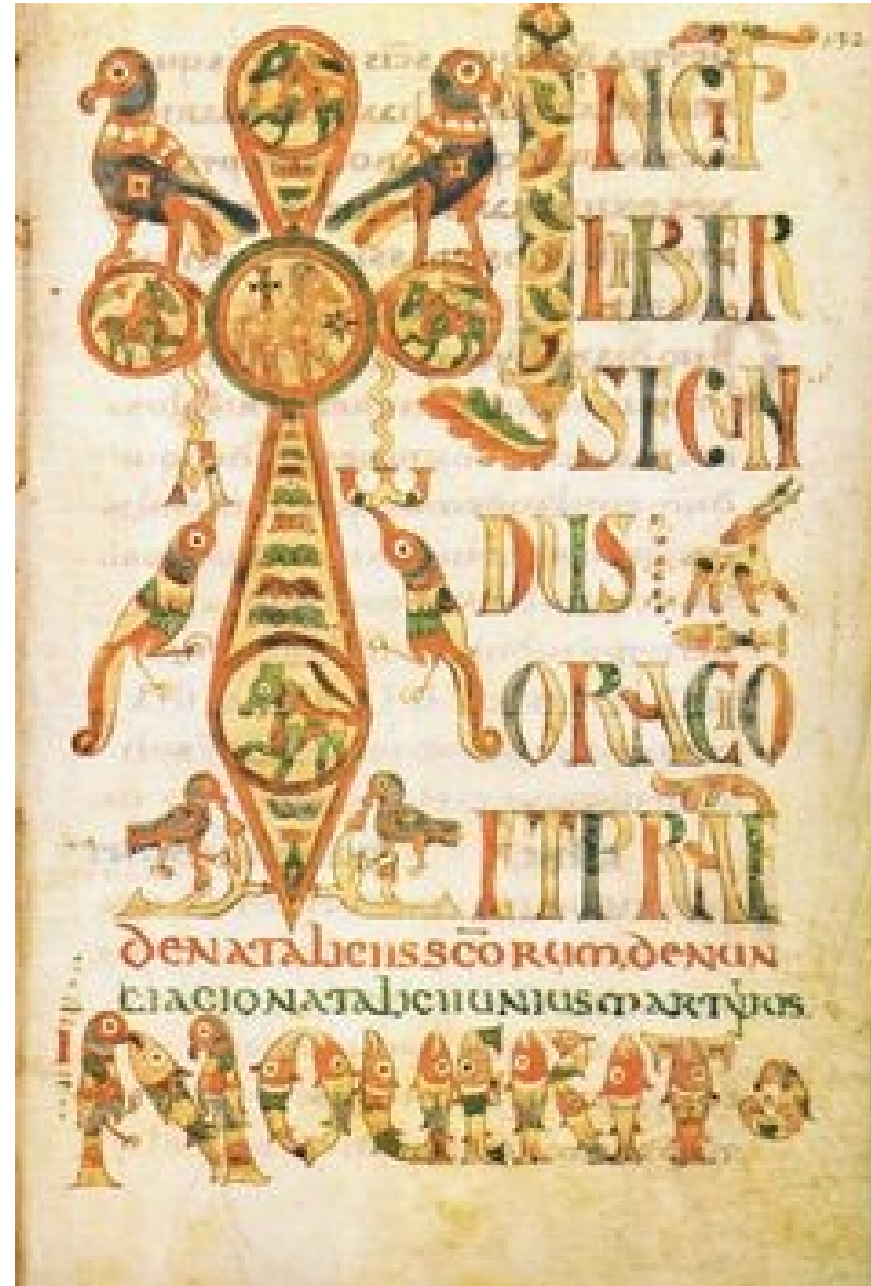 132
INCIP
LIBER
SECUN
DUS
ORACIO
ET PRAE
DENATALICIISSCORUM.DENUN
TIACIONATALICIIUNIUSMARTYROS
NOUERIT